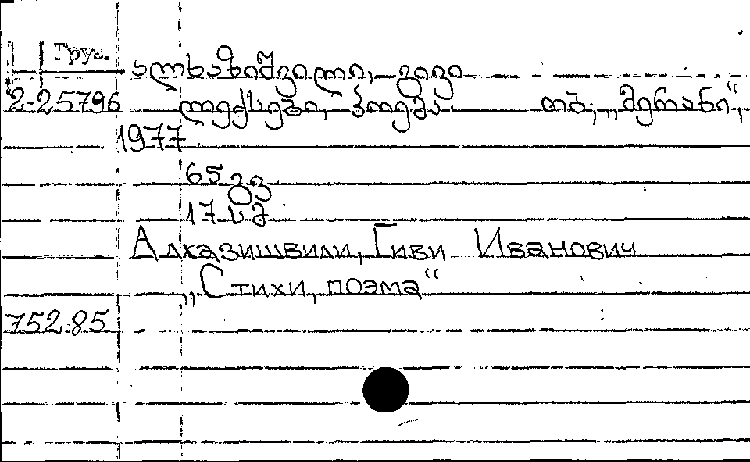 Груз.
ალხაზიშვილი, გივი
2-25796 ლექსები, პოემა თბ., „მერანი“,
1977
65 გვ
17 სმ
Алхазишвили, Гиви Иванович
„Стихи, поэма“
752.85